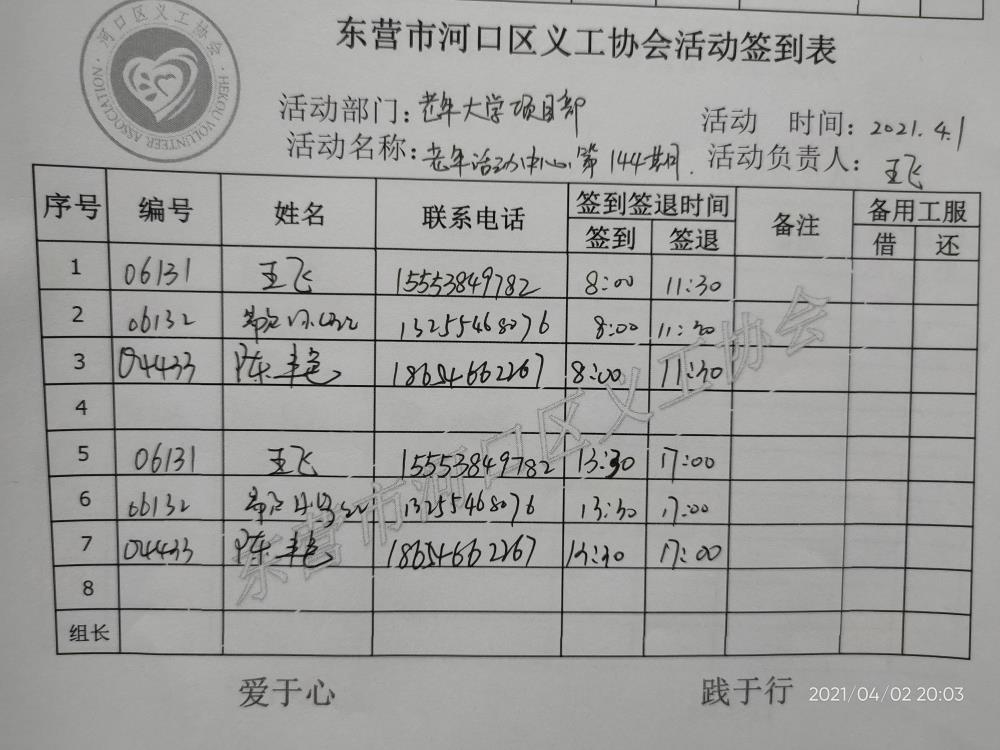 河口区义工协会
HEKOU VOLUNTEER ASSOCIATION
东营市河口区义工协会活动签到表
活动部门：老年大学项目部
活动 时间：2021.4.1
活动名称：老年活动中心第144期.
活动负责人：王飞
序号 编号 姓名 联系电话 签到签退时间 备注 备用工服
签到 签退 借 还
1 06131 王飞 15553849782 8:00 11:30
2 06132 13255468076 8:00 11:30
3 04433 陈丰艳 18654662267 8:00 11:30
4
5 06131 王飞 15553849782 13:30 17:00
6 06132 13255468076 13:30 17:00
7 04433 陈丰艳 18654662267 13:30 17:00
8
组长
东营市河口区义工协会
爱于心 践于行
2021/04/02 20:03